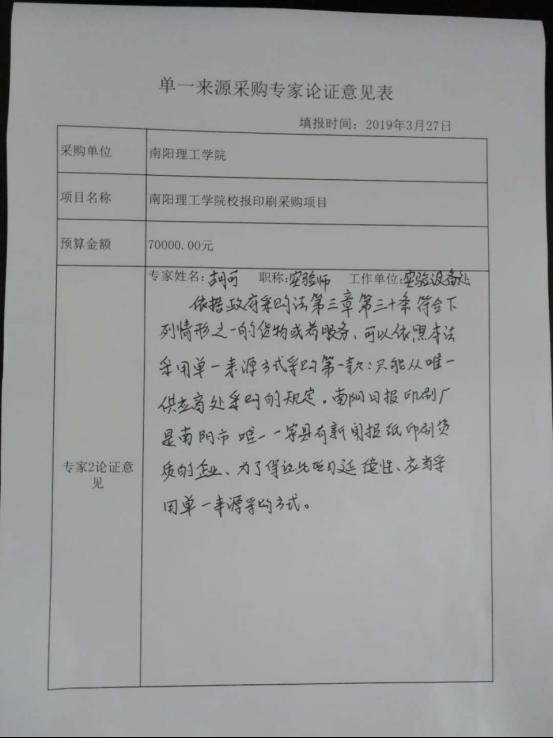 单一来源采购专家论证意见表
填报时间：2019年3月27日
采购单位
南阳理工学院
项目名称
南阳理工学院校报印刷采购项目
预算金额
70000.00元
专家姓名：胡可 职称：实验师 工作单位：实验设备处
依据政府采购法第三章第三十条符合下
列情形之一的货物或者服务、可以依照本法
采用单一来源方式采购第一款：只能从唯一
供应商处采购的规定。南阳日报印刷厂
是南阳市唯一一家具有新闻报纸印刷资
质的企业、为了保证此项目延续性、应当采
用单一来源采购方式。
专家2论证意
见